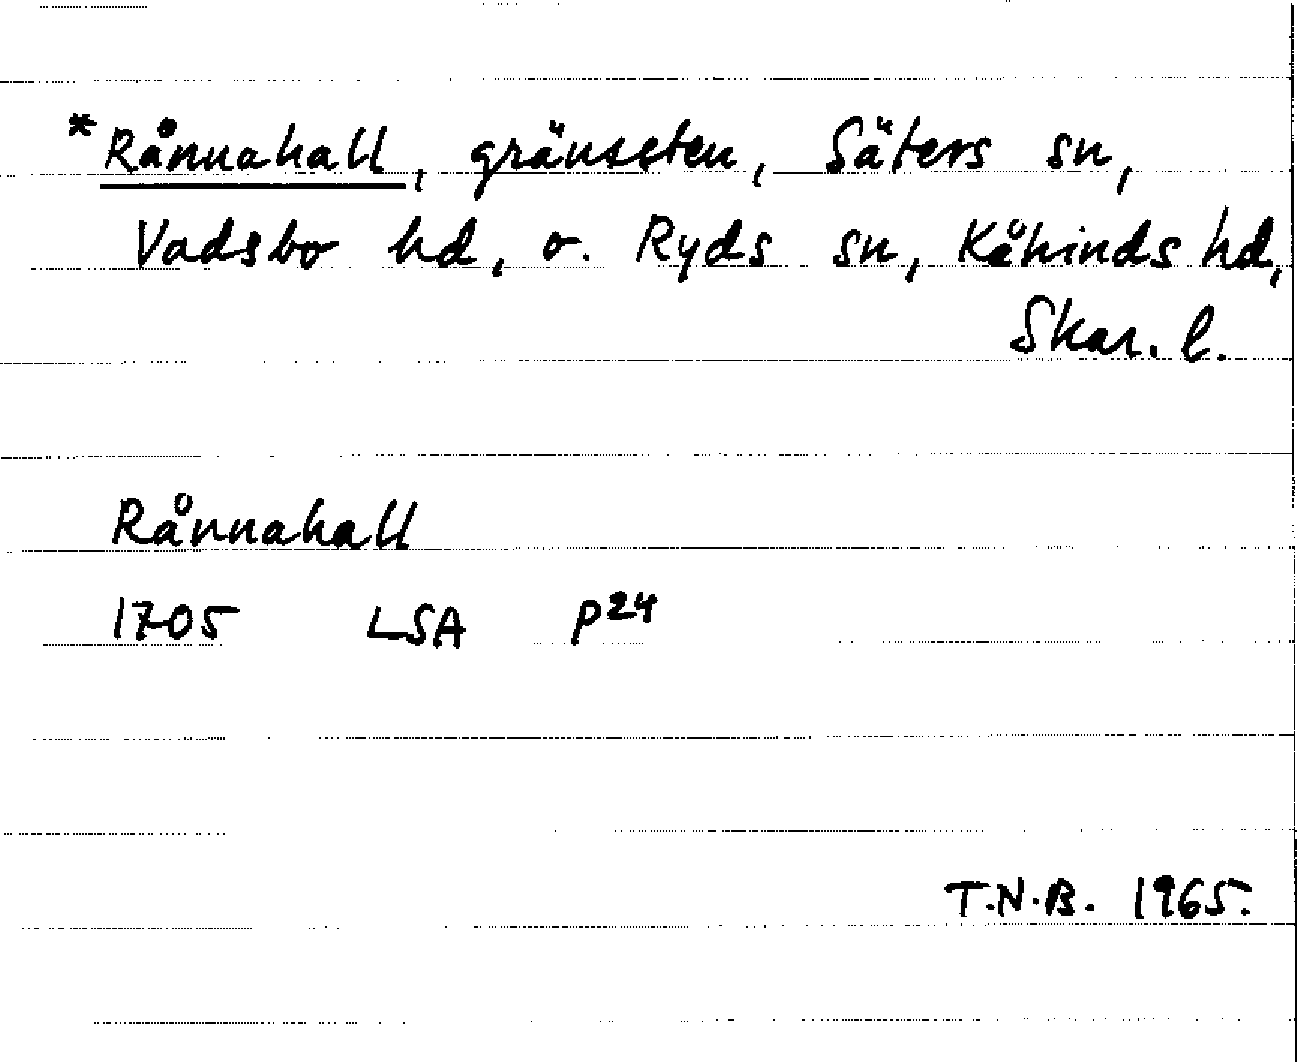 *Rånnahall, gränssten, Säters sn,
Vadsbo hd, o. Ryds sn, Kåkinds hd,
Skar. l.
Rånnahall
1705 LSA P24
T.N.B. 1965.